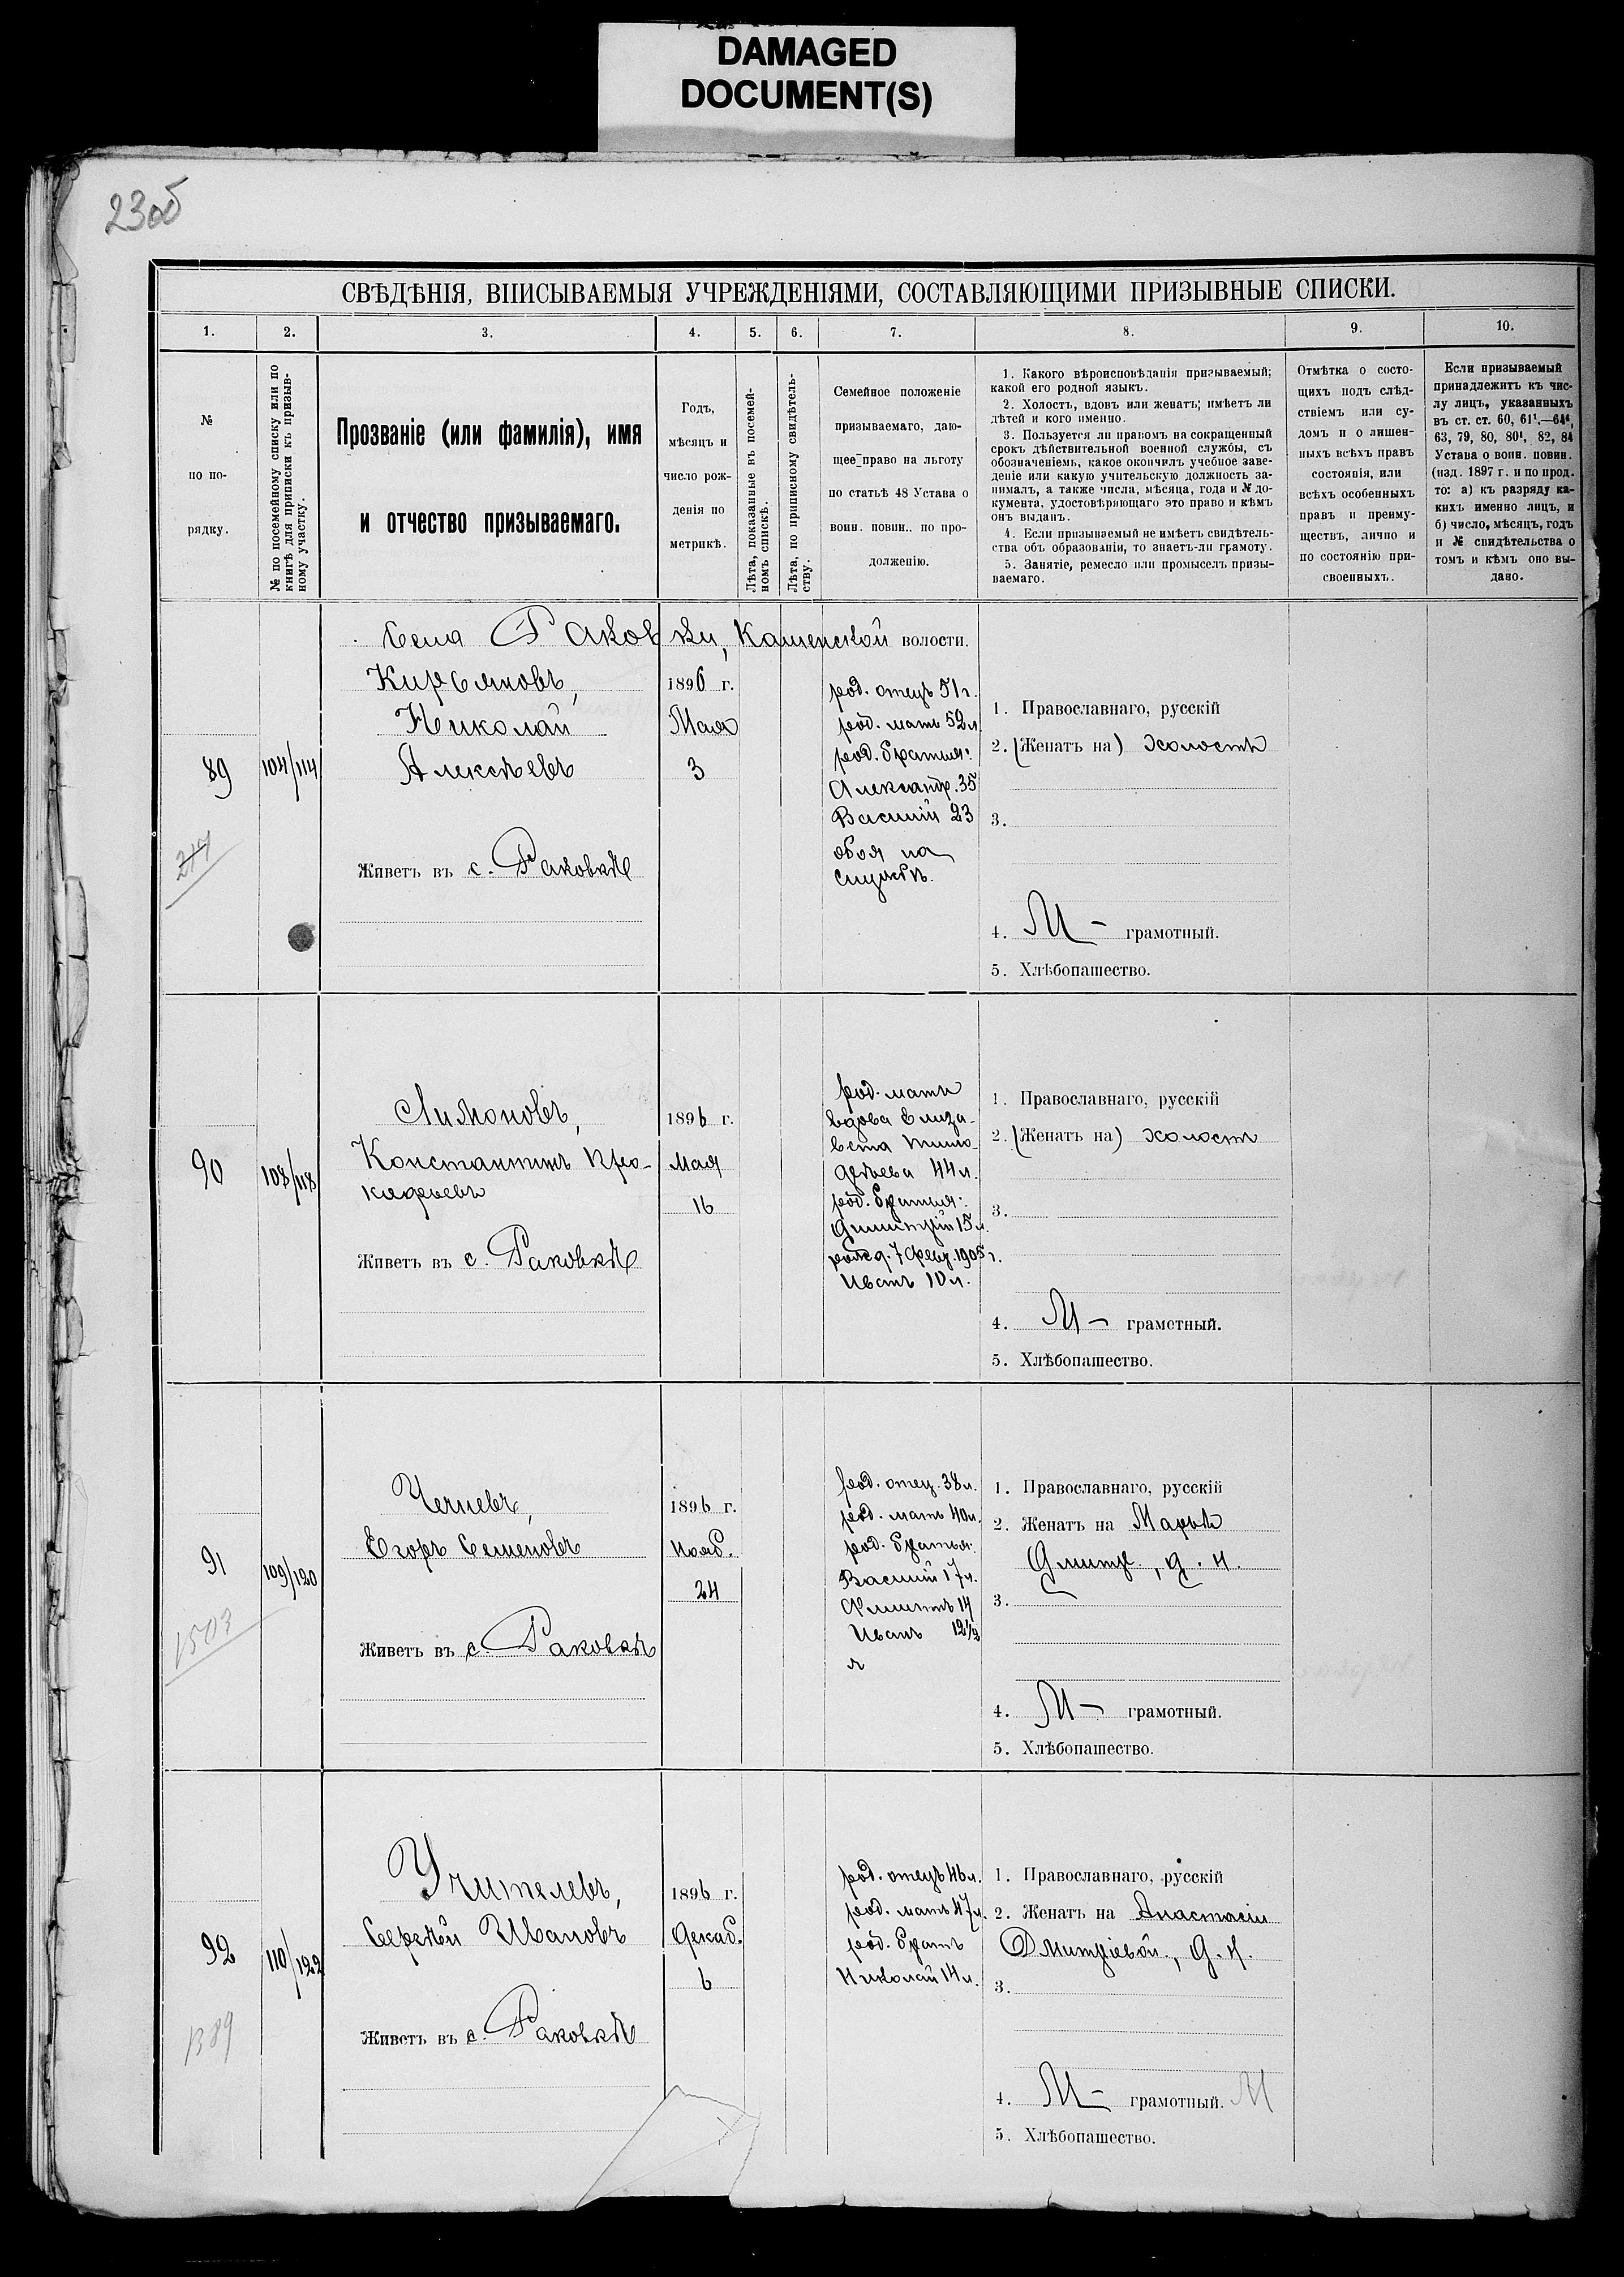 DAMAGED
DOCUMENT(S)
23об
СВѢДѢНІЯ, ВПИСЫВАЕМЫЯ УЧРЕЖДЕНІЯМИ, СОСТАВЛЯЮЩИМИ ПРИЗЫВНЫЕ СПИСКИ.
1. 2. 3. 4. 5. 6. 7. 8. 9. 10.
№
по по-
рядку.
№ по посемейному списку или по
книгѣ для приписки къ призыв-
ному участку.
Прозваніе (или фамилія), имя
и отчество призываемаго.
Годъ,
мѣсяцъ и
число рож-
денія по
метрикѣ.
Лѣта, показанные въ посемей-
номъ спискѣ.
Лѣта, по приписному свидѣтель-
ству.
Семейное положеніе
призываемаго, даю-
щее право на льготу
по статьѣ 48 Устава о
воин. повин.. по про-
долженію.
1. Какого вѣроисповѣданія призываемый;
какой его родной языкъ.
2. Холостъ, вдовъ или женатъ; имѣетъ ли
дѣтей и кого именно.
3. Пользуется ли правомъ на сокращенный
срокъ дѣйствительной военной службы, съ
обозначеніемъ, какое окончилъ учебное заве-
деніе или какую учительскую должность за-
нималъ, а также числа, мѣсяца, года и № до-
кумента, удостовѣряющаго это право и кѣмъ
онъ выданъ.
4. Если призываемый не имѣетъ свидѣтель-
ства объ образованіи, то знаетъ-ли грамоту.
5. Занятіе, ремесло или промыселъ призы-
ваемаго.
Отмѣтка о состо-
щихъ подъ слѣд-
ствіемъ или су-
домъ и о лишен-
ныхъ всѣхъ правъ
состоянія, или
всѣхъ особенныхъ
правъ и преиму-
ществъ, лично и
по состоянію при-
своенныхъ.
Если призываемый
принадлежитъ къ чис-
лу лицъ, указанныхъ
въ ст. ст. 60, 61¹.—64⁴,
63, 79, 80, 80¹, 82, 84
Устава о воин. повин.
(изд. 1897 г. и по прод.
то: а) къ разряду ка-
кихъ именно лицъ, и
б) число, мѣсяцъ, годъ
и № свидѣтельства о
томъ и кѣмъ оно вы-
дано.
Села Раковки, Каменской волости.
89
104/114
Кирсяновъ,
Николай
Алексѣевъ
Живетъ въ с. Раковкѣ
1896 г.
Мая
3
род. отецъ 51 г.
род. мать 52 л.
род. братья:
Александр. 35
Василій 23
оба на
службѣ.
1. Православнаго, русскій
2. (Женатъ на) холостъ
3.
4. М – грамотный.
5. Хлѣбопашество.
90
108/118
Лимоновъ,
Константинъ Про-
кофьевъ
Живетъ въ с. Раковкѣ
1896 г.
Мая
16
род. мать
вдова Елиза-
вета Тимо-
фѣева 44 л.
род. братья:
Дмитрій 15 л.
рожд. 7 февр. 1905 г.
Иванъ 10 л.
1. Православнаго, русскій
2. (Женатъ на) холостъ
3.
4. М – грамотный.
5. Хлѣбопашество.
91
1503
109/120
Черневъ,
Егоръ Семеновъ
Живетъ въ с. Раковкѣ
1896 г.
Нояб.
24
род. отец. 38 л.
род. мать 40 л.
род. братья:
Василій 17 л.
Филиппъ 14
Иванъ 12½
л
1. Православнаго, русскій
2. Женатъ на Марьѣ
Дмитр., д. н.
3.
4. М – грамотный.
5. Хлѣбопашество.
92
1389
110/122
Учителевъ,
Сергѣй Ивановъ
Живетъ въ с. Раковкѣ
1896 г.
Декаб.
6
род. отецъ 46 л.
род. мать 47 л.
род. братъ
Николай 14 л.
1. Православнаго, русскій
2. Женатъ на Анастасіи
Дмитріевой, д. н.
3.
4. М – грамотный. М
5. Хлѣбопашество.